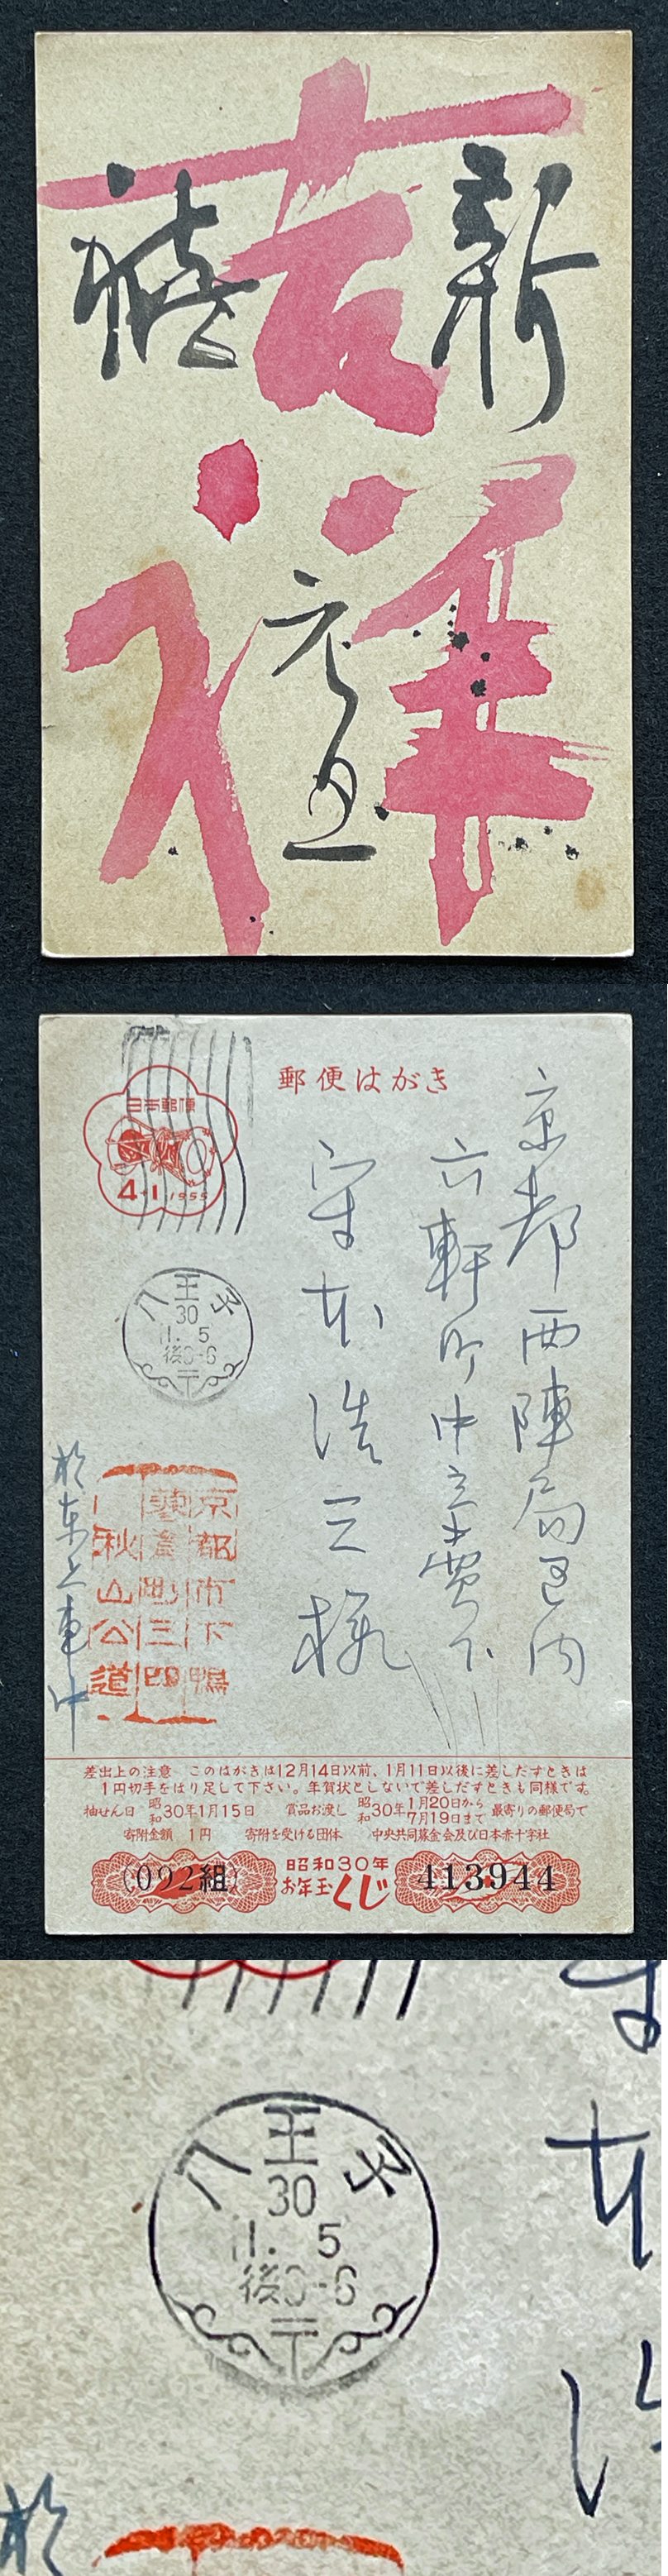 吉祥
新禧
元旦
郵便はがき
日本郵便
4+1 1955
京都西陣局区内
六軒町中立売下
守本浩三様
八王子
30
1. 5
後0-6
〒
於東上車中
京都市下鴨
秋山公道
差出上の注意 このはがきは12月14日以前、1月11日以後に差しだすときは
1円切手をはり足して下さい。年賀状としないで差しだすときも同様です。
抽せん日 昭和30年1月15日 賞品お渡し 昭和30年1月20日から7月19日まで 最寄りの郵便局で
寄附金額 1円 寄附を受ける団体 中央共同募金会及び日本赤十字社
(092組) 昭和30年お年玉くじ 413944
八王子
30
1. 5
後0-6
〒
於